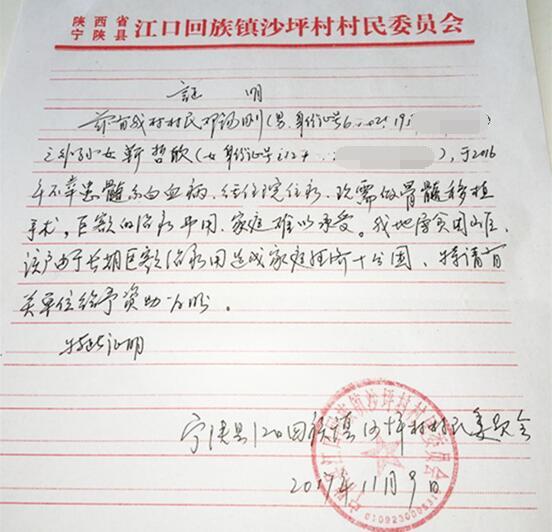 陕西省
宁陕县
江口回族镇沙坪村村民委员会
证 明
兹有我村村民邓 刚(男,身份证号6
之外孙女靳哲欣(女 身份证号),于2016
年不幸患髓系白血病,住院,现需做骨髓移植
手术,巨额的治疗费用,家庭难以承受。我地属贫困山区,
该户由于长期巨额治疗用造成家庭经济十分困,特请有
关单位给予资助为盼。
特此证明
宁陕县江口回族镇沙坪村村民委员会
2017年11月9日
江口回族镇沙坪村村民委员会